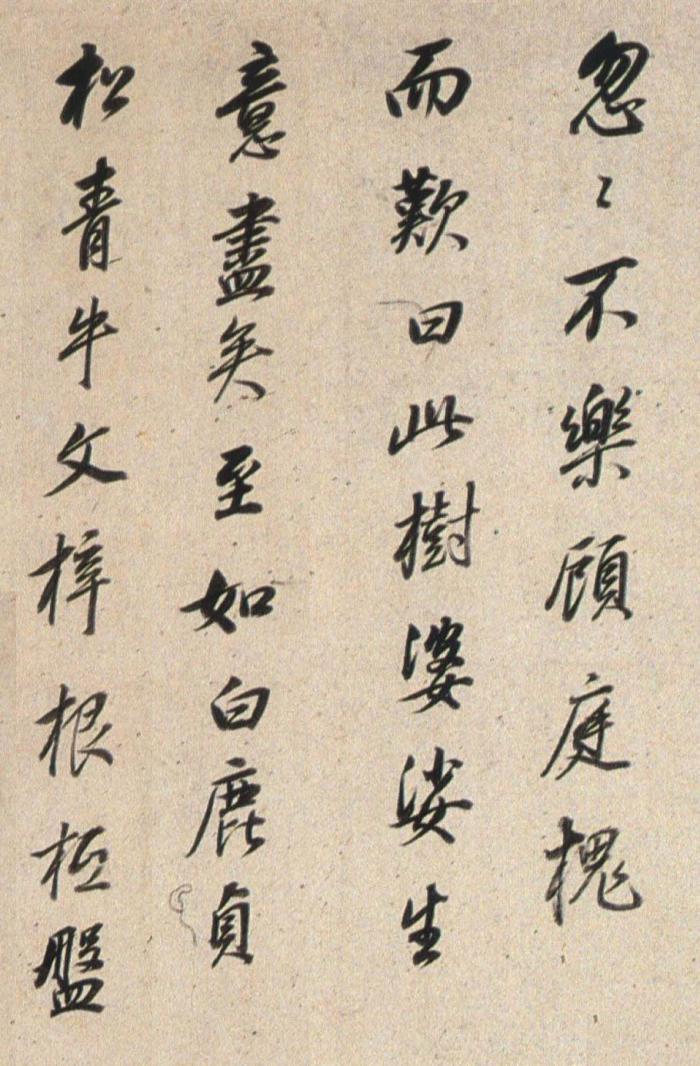 忽〻不樂顧庭槐
而歎曰此樹婆娑生
意盡矣至如白鹿貞
松青牛文梓根柢盤